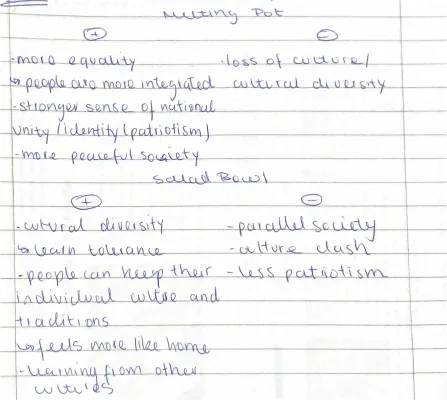 Melting Pot
+ –
-more equality -loss of culture/
↳people are more integrated cultural diversity
-stronger sense of national
unity/identity (patriotism)
-more peaceful society
Salad Bowl
+ –
-cultural diversity -parallel society
↳learn tolerance -culture clash
-people can keep their -less patriotism
individual cultre and
traditions
↳feels more like home
-learning from other
cultures